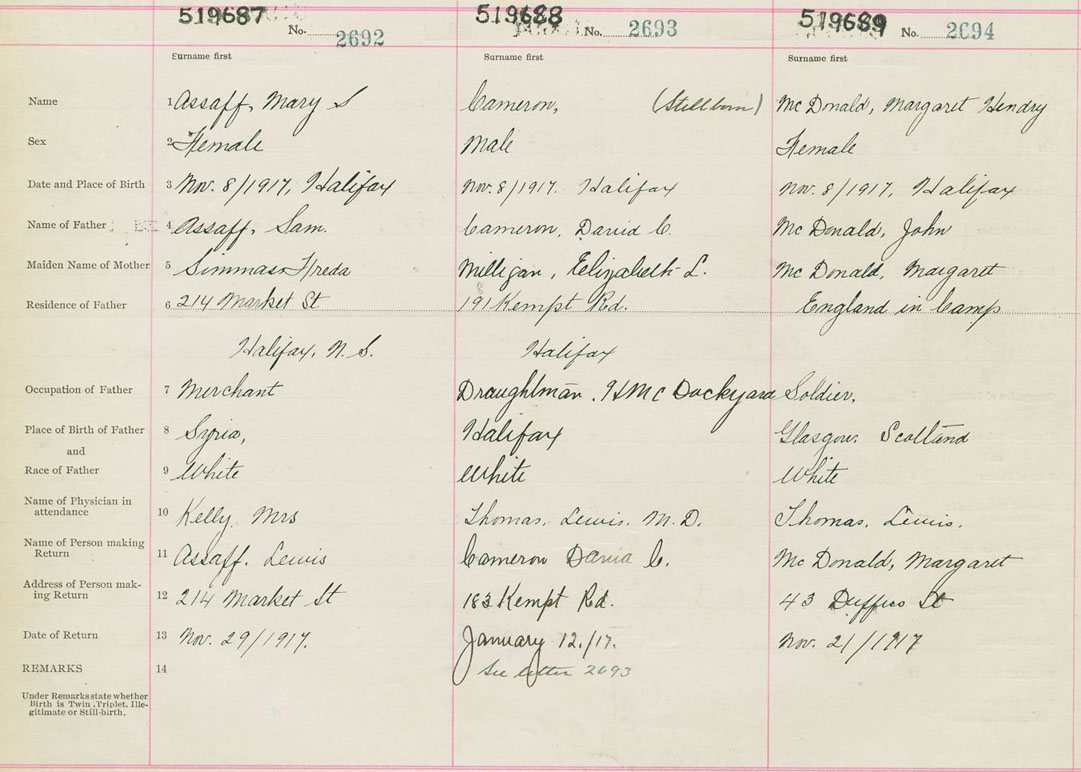 519687 519688 519689
No. 2692 No. 2693 No. 2694
Surname first Surname first Surname first
Name 1 Assaff, Mary S Cameron, (Stillborn) Mc Donald, Margaret Hendry
Sex 2 Female Male Female
Date and Place of Birth 3 Nov. 8/1917, Halifax Nov. 8/1917. Halifax Nov. 8/1917, Halifax
Name of Father 4 Assaff, Sam. Cameron, David C. Mc Donald, John
Maiden Name of Mother 5 Simmas Freda Milligan, Elizabeth L. Mc Donald, Margaret
Residence of Father 6 214 Market St 191 Kempt Rd. England in Camp
Halifax, N. S. Halifax
Occupation of Father 7 Merchant Draughtman. HMC Dockyard Soldier.
Place of Birth of Father 8 Syria, Halifax Glasgow. Scotland
and
Race of Father 9 White White White
Name of Physician in
attendance 10 Kelly Mrs Thomas. Lewis. M.D. Thomas. Lewis.
Name of Person making
Return 11 Assaff. Lewis Cameron David C. Mc Donald, Margaret
Address of Person mak-
ing Return 12 214 Market St 183 Kempt Rd. 43 St
Date of Return 13 Nov. 29/1917. January 12./17. Nov. 21/1917
REMARKS 14 See letter 2693
Under Remarks state whether
Birth is Twin, Triplet, Ille-
gitimate or Still-birth.